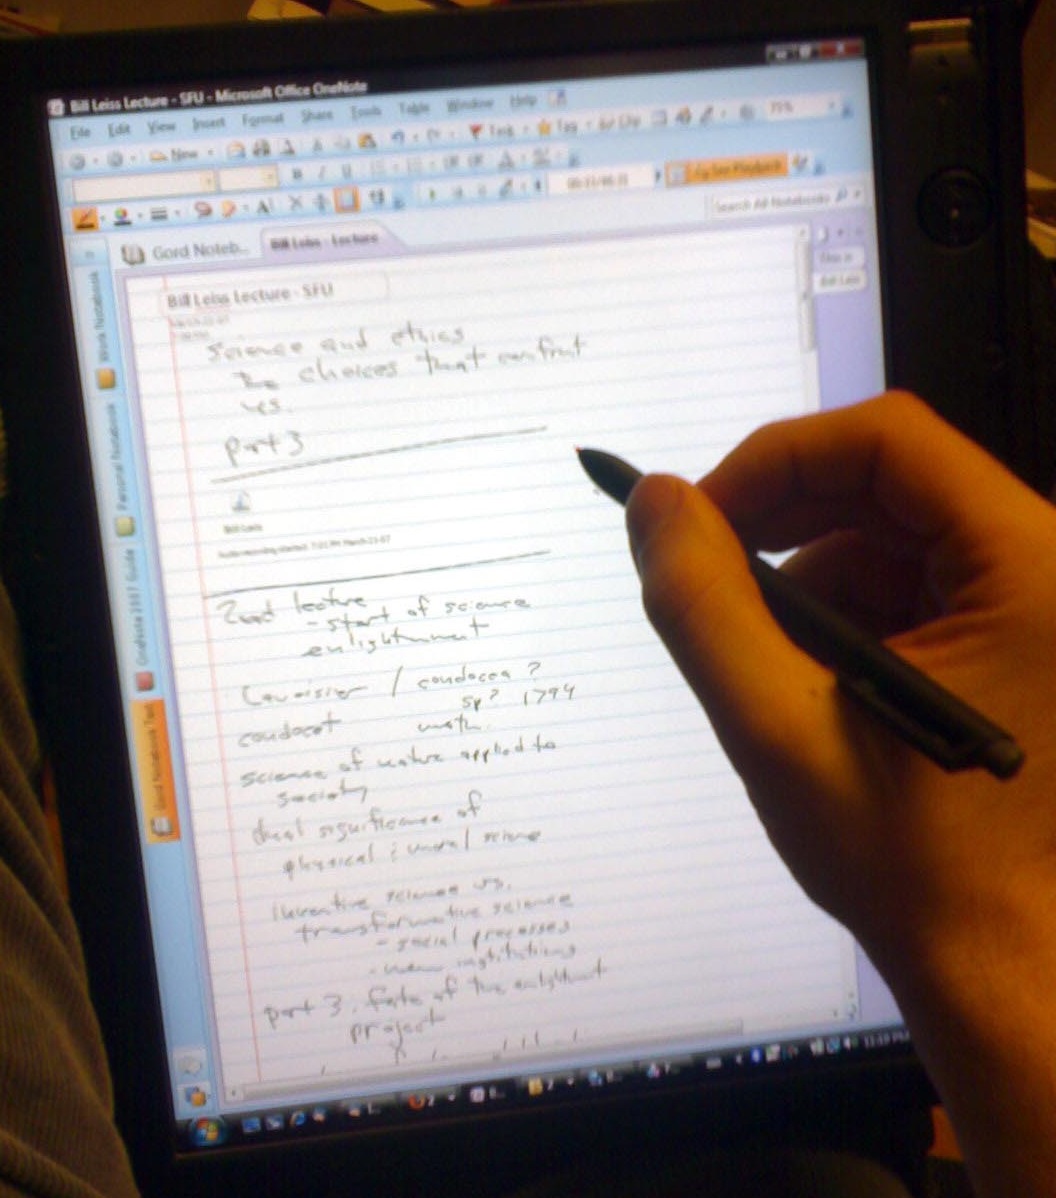 Bill Leiss Lecture - SFU - Microsoft Office OneNote
File Edit View Insert Format Share Tools Table Window Help
New Task Tag Clip 75%
B I U
Search All Notebooks
Gord Noteb... Bill Leiss - Lecture
Bill Leiss
Work Notebook
Personal Notebook
OneNote 2007 Guide
Gord Notebook Test
Bill Leiss Lecture - SFU
Science and ethics
The choices that confront
us.
part 3
Bill Leiss
Audio recording started: 7:03 PM March-23-07
2nd lecture
- start of science
enlightnment
Lavoisier / condocea ?
sp? 1794
condocet math.
science of nature applied to
society
dual significance of
physical & moral science
inventive science vs.
transformative science
- social processes
- new institutions
part 3. fate of the enlightmt
project
11:19 PM